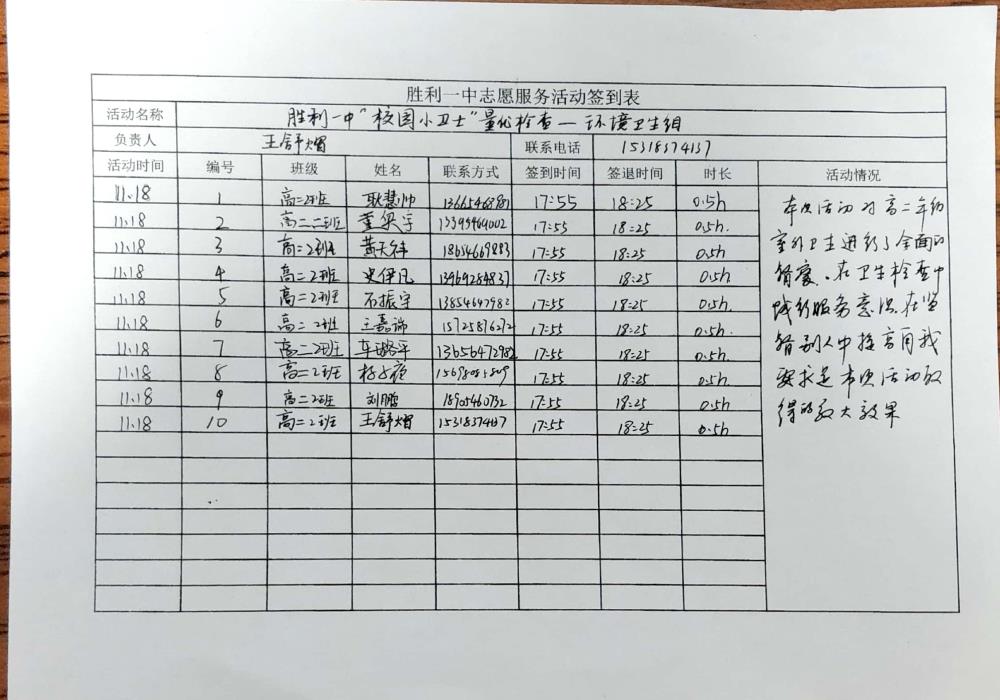 胜利一中志愿服务活动签到表
活动名称 胜利一中“校园小卫士”量化检查—环境卫生组
负责人 王舒熠 联系电话 15318374137
活动时间 编号 班级 姓名 联系方式 签到时间 签退时间 时长 活动情况
11.18 1 高二2班 耿慧帅 17:55 18:25 0.5h
11.18 2 高二二班 董梁宇 13395464002 17:55 18:25 0.5h.
11.18 3 高二2班 黄天祥 18654669883 17:55 18:25 0.5h
11.18 4 高二2班 史伊凡 13969284837 17:55 18:25 0.5h
11.18 5 高二2班 石振宇 13854647982 17:55 18:25 0.5h.
11.18 6 高二2班 王嘉瑞 15725876272 17:55 18:25 0.5h.
11.18 7 高二2班 车璐平 13656472982 17:55 18:25 0.5h.
11.18 8 高二2班 17:55 18:25 0.5h.
11.18 9 高二2班 刘鹏 18905460732 17:55 18:25 0.5h
11.18 10 高二2班 王舒熠 17:55 18:25 0.5h
本次活动对高二年级
室外卫生进行了全面的
督察、在卫生检查中
践行服务意识在监
督别人中提高自我
要求是本次活动取
得的较大效果